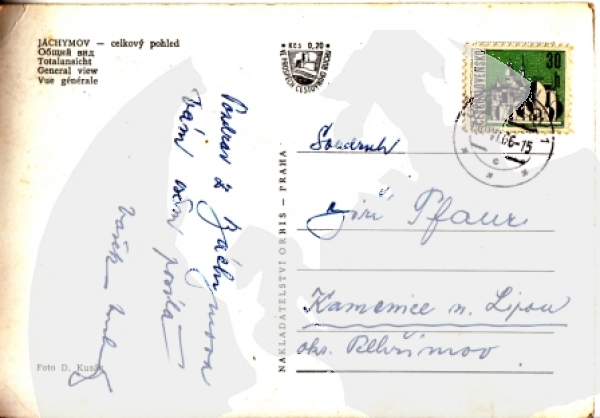 JÁCHYMOV — celkový pohled
Общий вид
Totalansicht
General view
Vue générale
KČS 0,20
VE PROSPĚCH CESTOVNÍHO RUCHU
30 h
ČESKOSLOVENSKO
66-15
Pozdrav z Jáchymova
Vám všem posílá
Foto D. Kusák
NAKLADATELSTVÍ ORBIS - PRAHA
Soudruh
Jiří Pfaur
Kamenice n. Lipou
okr. Pelhřimov